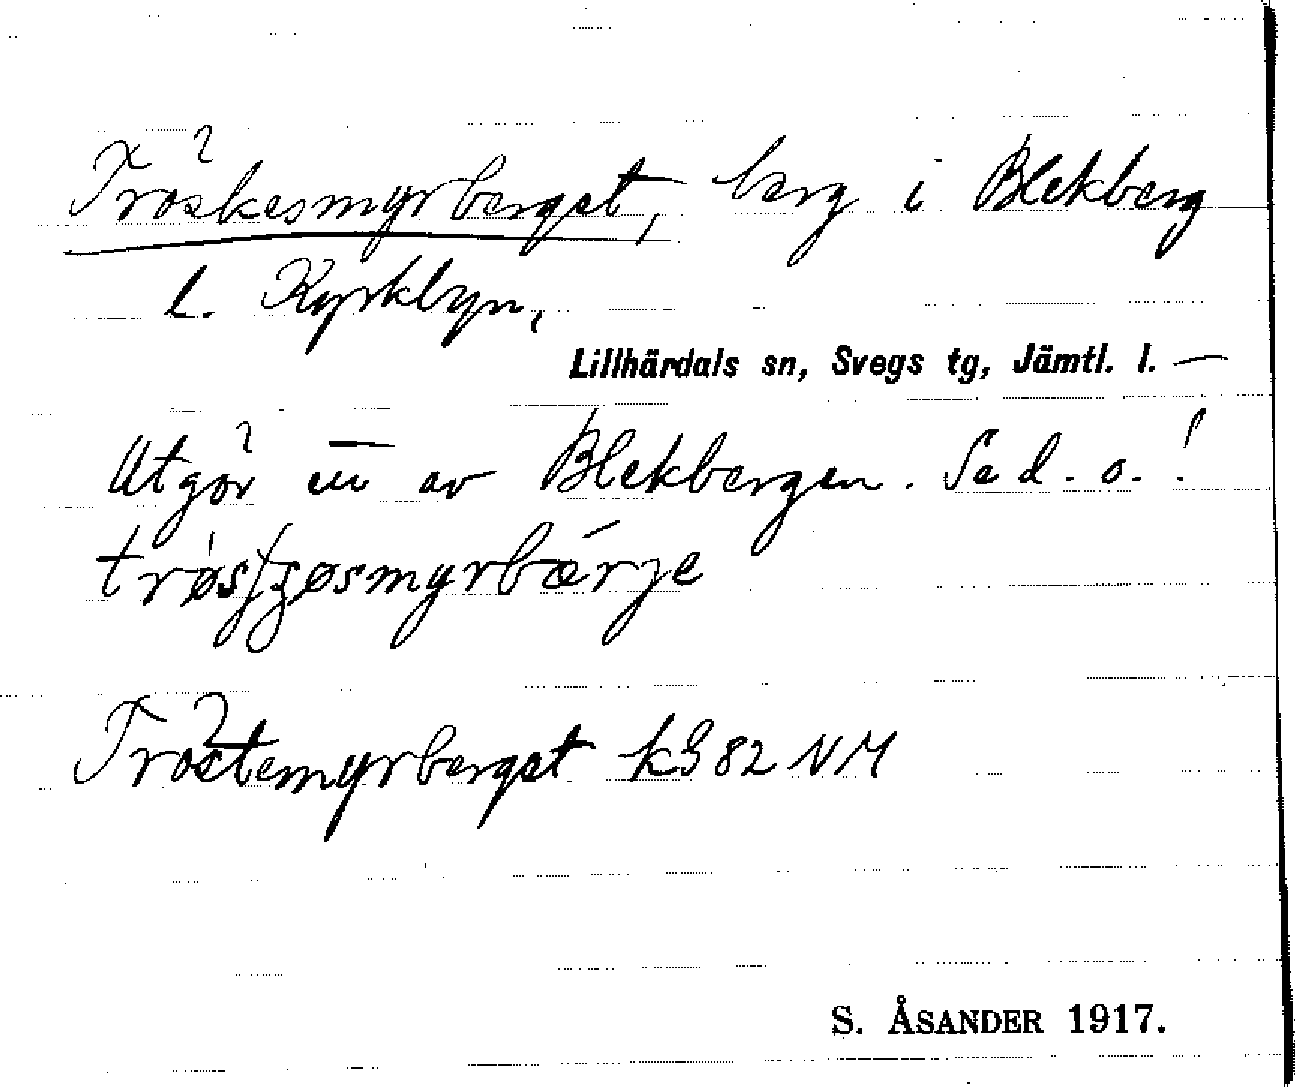 Tröskesmyrberget, berg i Blekberg
l. Kyrkbyn,
Lillhärdals sn, Svegs tg, Jämtl. l. —
Utgör en av Blekbergen. Se d. o.!
Tröstemyrberget kB 82 NM
S. ÅSANDER 1917.